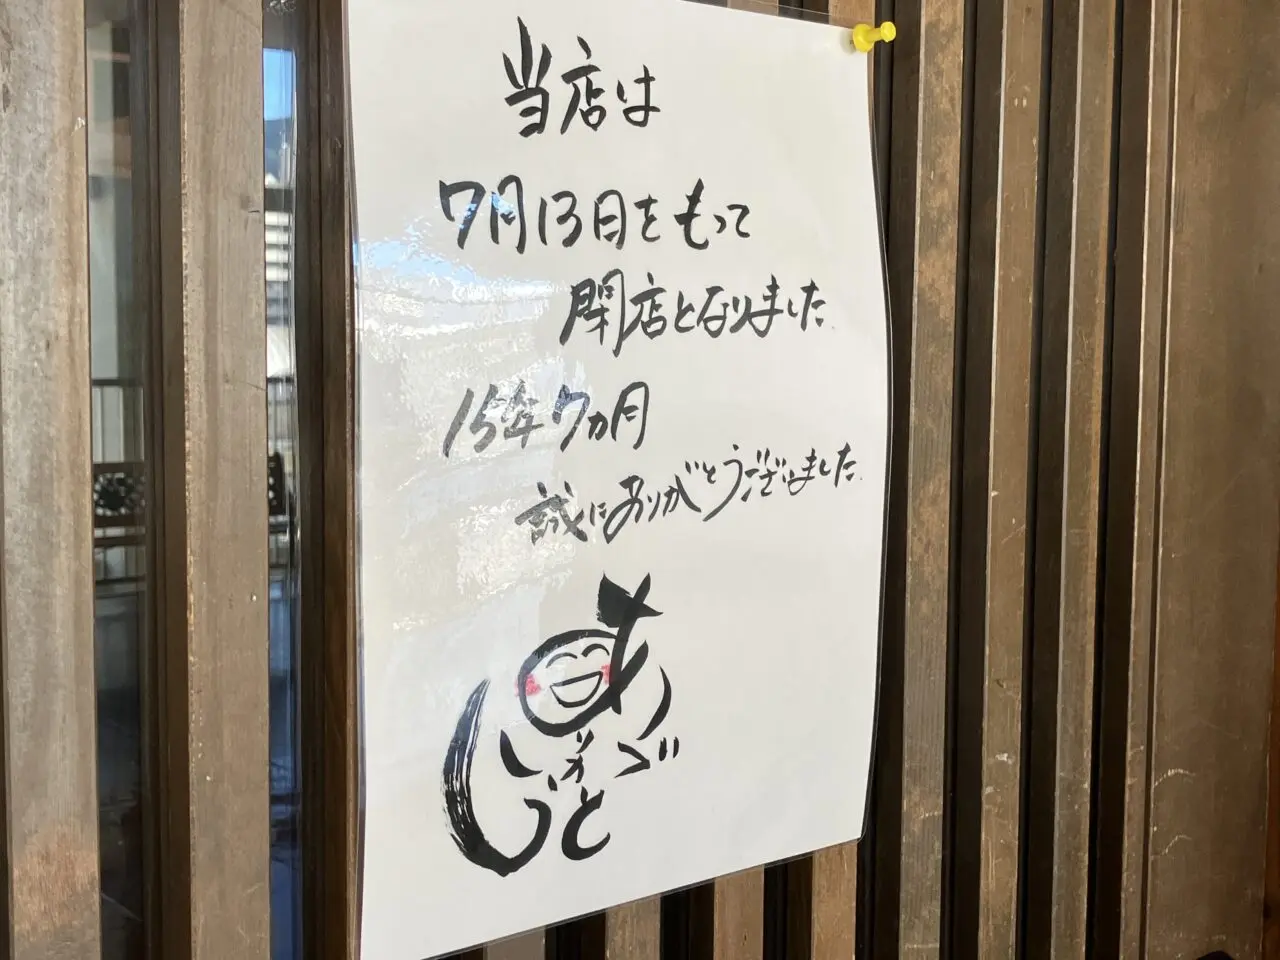 当店は
7月13日をもって
閉店となりました.
15年7ヵ月
誠にありがとうございました.
ありがとう